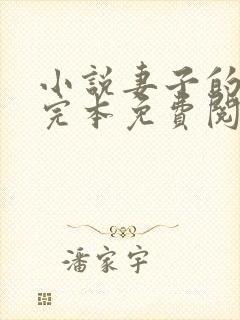 小説妻子的
完本免費閱
潘家宇